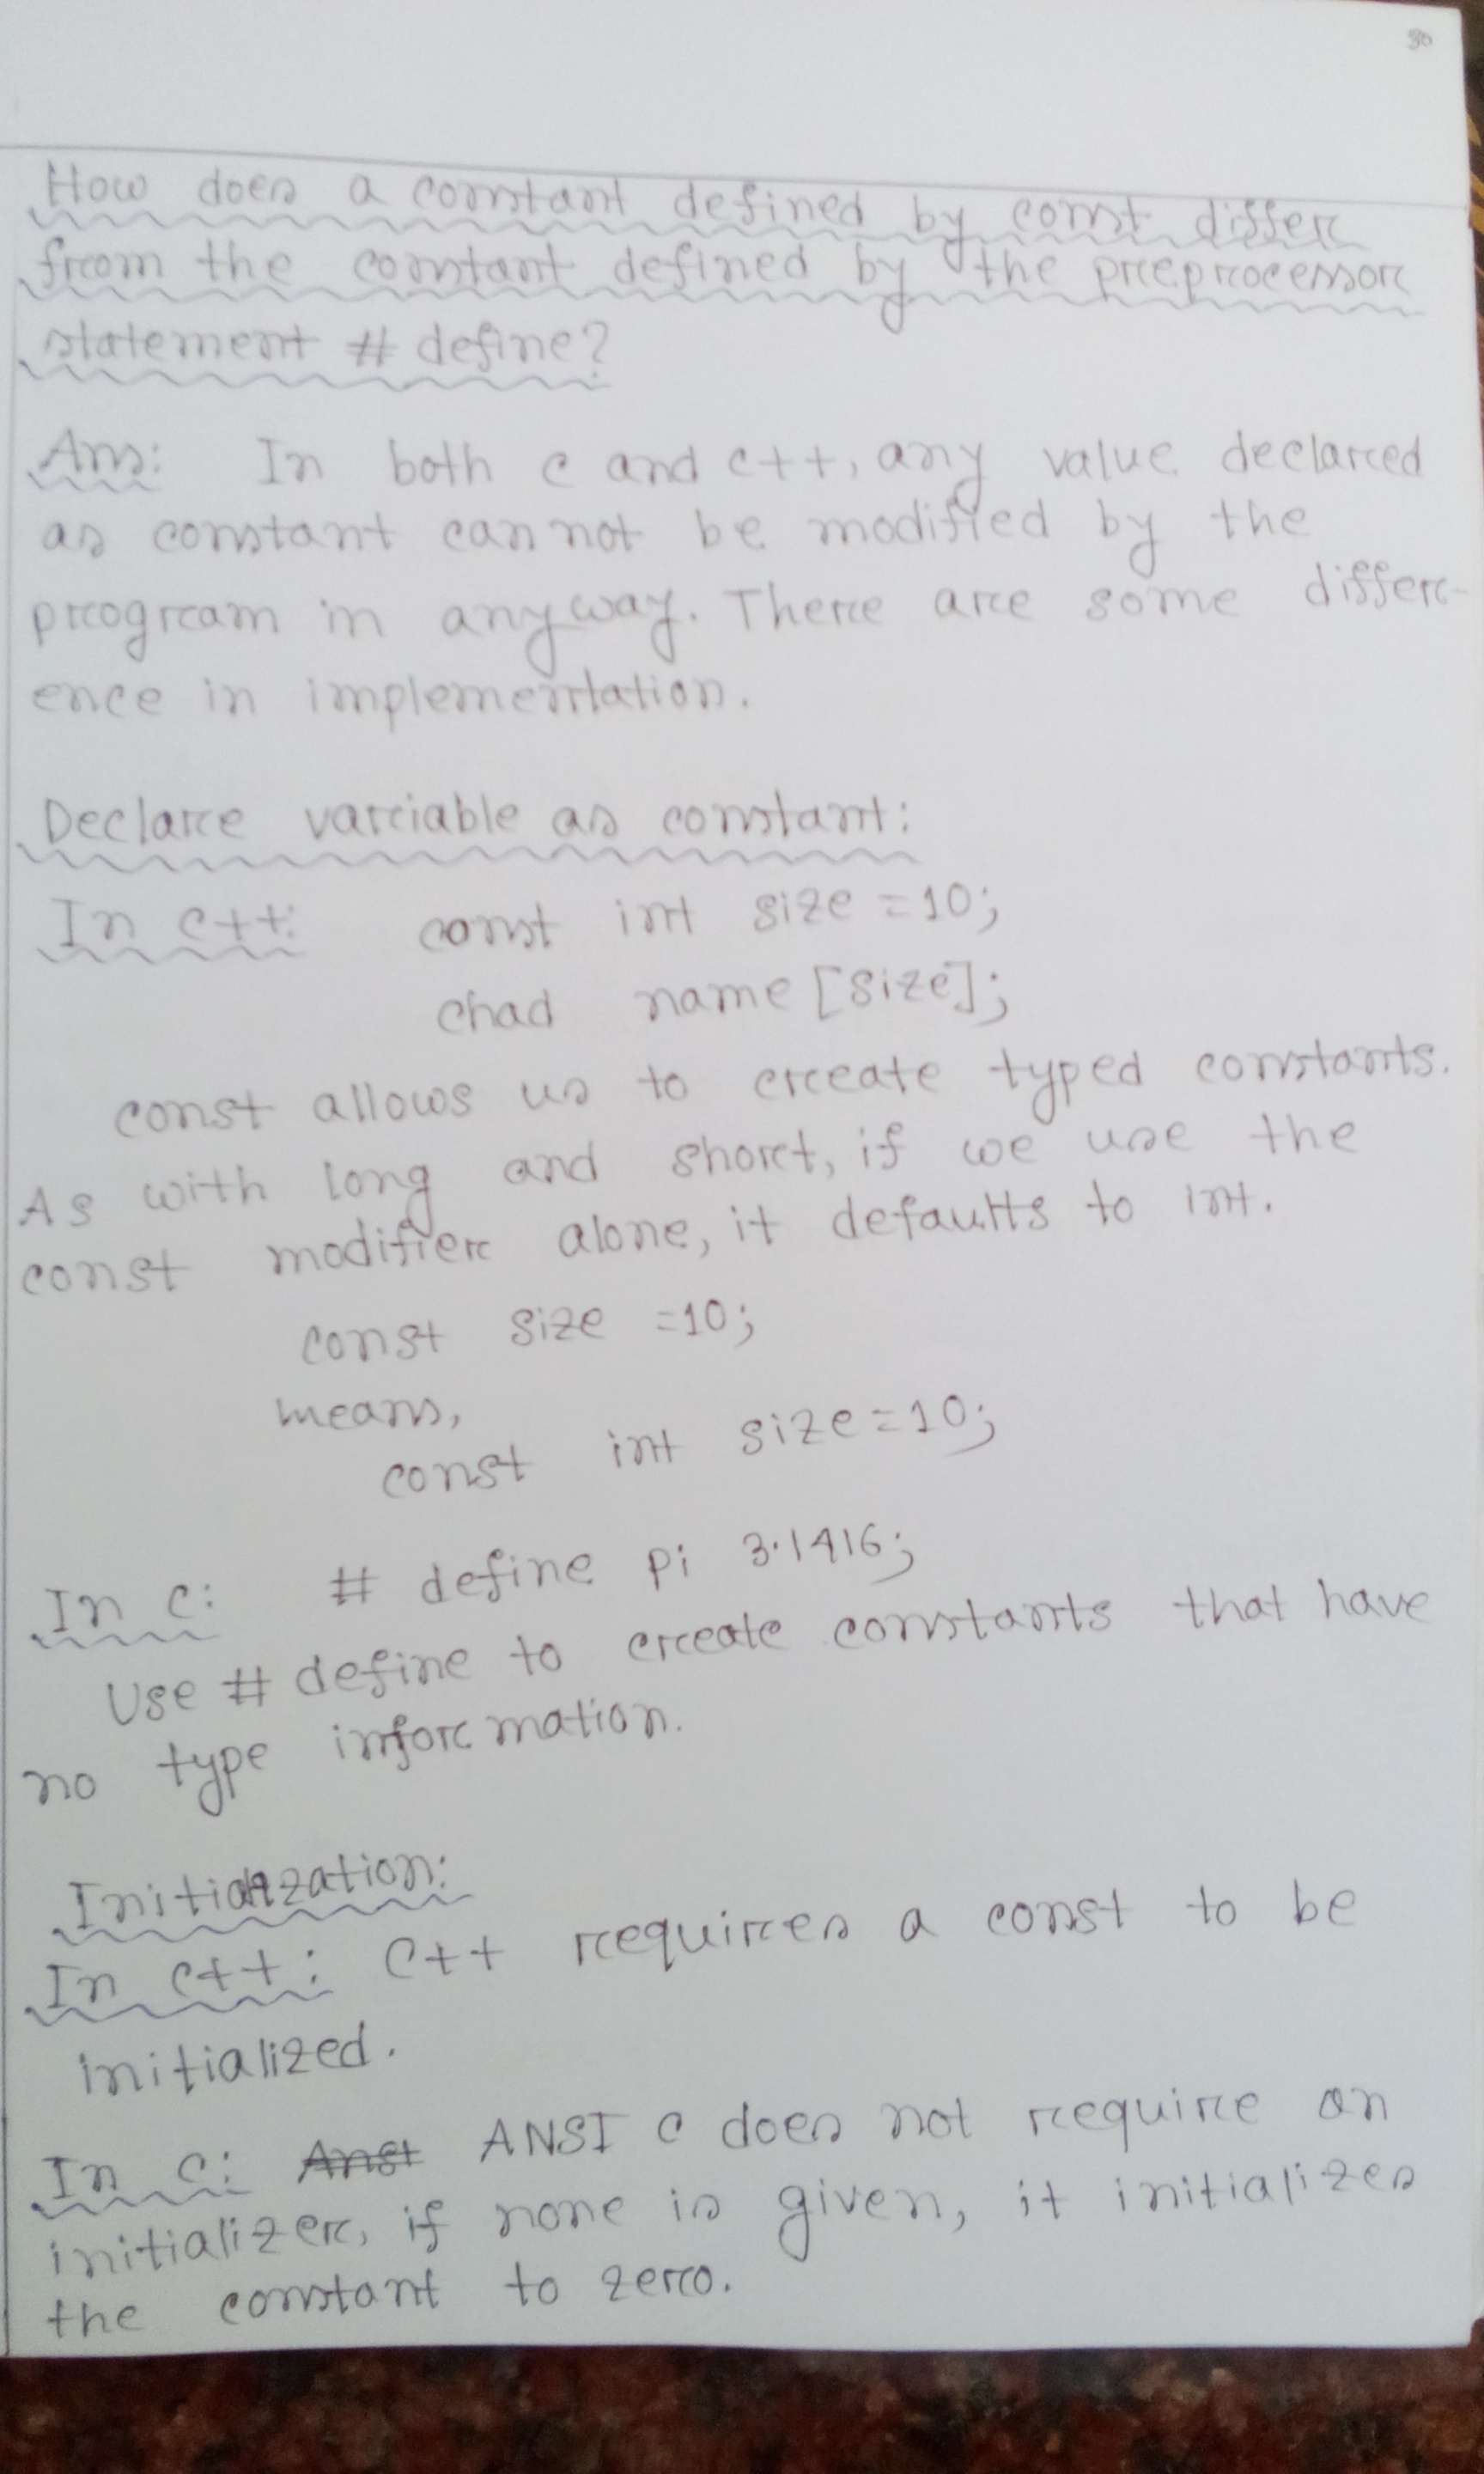 30
How does a constant defined by const differ
from the constant defined by the preprocessor
statement # define?
Ans: In both c and c++, any value declared
as constant can not be modified by the
program in anyway. There are some differ-
ence in implementation.
Declare variable as constant:
In c++: const int size =10;
chad name [size];
const allows us to create typed constants.
As with long and short, if we use the
const modifier alone, it defaults to int.
const size =10;
means,
const int size=10;
In c: # define pi 3.1416;
Use # define to create constants that have
no type information.
Initialization:
In c++: C++ requires a const to be
initialized.
In c: Anst ANSI c does not require an
initializer, if none is given, it initializes
the constant to zero.